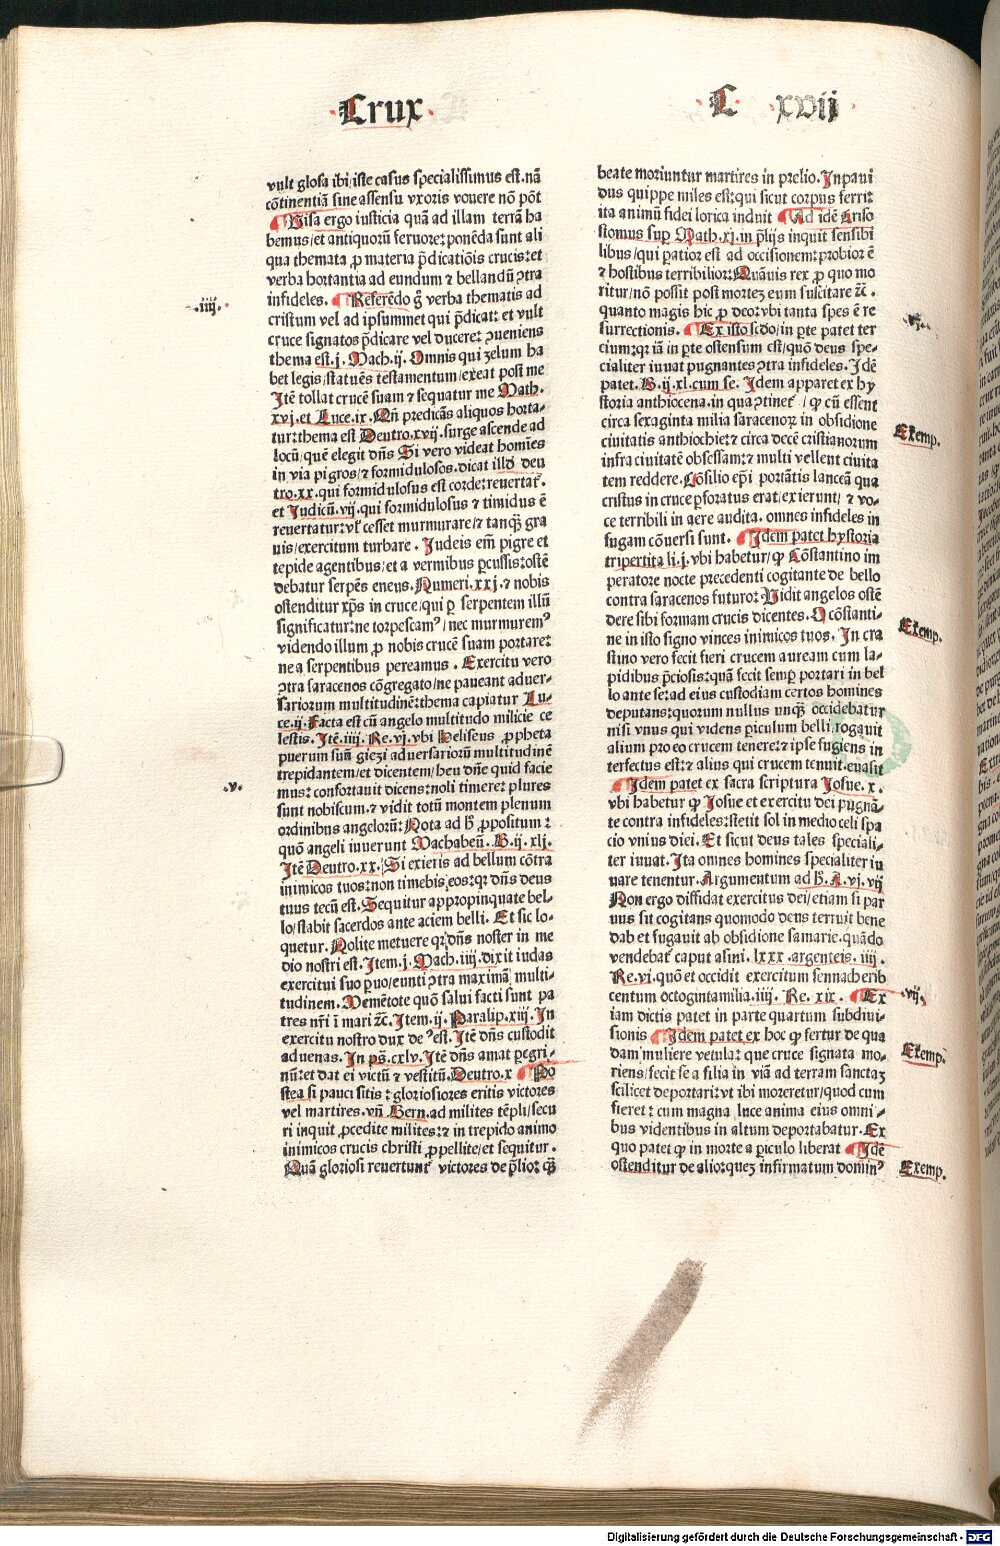 Crux
C xvij
vult glosa ibi/iste casus specialissimus est.nā
cōtinentiā sine assensu vxoris vouere nō pōt
Uisa ergo iusticia quā ad illam terrā ha
bemus/et antiquorū feruore:ponēda sunt ali
qua themata ꝓ materia p̄dicatiōis crucis:et
verba hortantia ad eundum ⁊ bellandū ꝯtra
infideles. Referēdo g̊ verba thematis ad
.iiij.
cristum vel ad ipsummet qui p̄dicat: et vult
cruce signatos p̄dicare vel ducere: ꝯueniens
thema est.j. Mach.ij. Omnis qui zelum ha
bet legis/statuēs testamentum/exeat post me
Itē tollat crucē suam ⁊ sequatur me Math.
xvj.et Luce.ix. Qn̄ predicās aliquos horta-
tur:thema est Deutro.xvij. surge ascende ad
locū/quē elegit dn̄s Si vero videat homīes
in via pigros/⁊ formidulosos.dicat illd̓ deu
tro.xx.qui formidulosus est corde:reuertat᷑.
et Judicū.vij.qui formidulosus ⁊ timidus ē
reuertatur:vl̓ cesset murmurare/⁊ tanqȝ gra
uis/exercitum turbare. Judeis em̄ pigre et
tepide agentibus/et a vermibus ꝑcussis:ostē
debatur serpēs eneus. Numeri.xxj.⁊ nobis
ostenditur xp̄s in cruce/qui ꝑ serpentem illū
significatur:ne torpescamꝰ/nec murmuremꝰ
videndo illum ꝓ nobis crucē suam portare:
ne a serpentibus pereamus. Exercitu vero
ꝯtra saracenos cōgregato/ne paueant aduer-
sariorum multitudinē:thema capiatur Lu-
ce.ij. Facta est cū angelo multitudo milicie ce
lestis. Itē.iiij. Re.vj.vbi Heliseus ꝓpheta
puerum suū giezi aduersariorū multitudinē
trepidantem/et dicentem/heu dn̄e quid facie
mus: confortauit dicens:noli timere: plures
.v.
sunt nobiscum.⁊ vidit totū montem plenum
ordinibus angelorū: Nota ad h̓ ꝓpositum:
quō angeli iuuerunt Machabeū. B.ij. xlj.
Itē Deutro.xx. Si exieris ad bellum cōtra
inimicos tuos:non timebis eos:qꝛ dn̄s deus
tuus tecū est. Sequitur appropinquate bel-
lo/stabit sacerdos ante aciem belli. Et sic lo-
quetur. Nolite metuere qꝛ dn̄s noster in me
dio nostri est. Item.j. Mach.iiij.dixit iudas
exercitui suo ꝑuo/eunti ꝯtra maximā multi-
tudinem. Memētote quō salui facti sunt pa
tres nr̄i ī mari ⁊c̄. Item.ij. Paralip.xiij. In
exercitu nostro dux deꝰ est. Itē dn̄s custodit
aduenas. In ps̄.cxlv. Itē dn̄s amat pegri-
nū:et dat ei victū ⁊ vestitū. Deutro.x Po
stea si pauci sitis: gloriosiores eritis victores
vel martires. vn̄ Bern.ad milites tēpli/secu
ri inquit ꝓcedite milites:⁊ in trepido animo
inimicos crucis christi ꝓpellite/et sequitur.
Quā gloriosi reuertunt᷑ victores de p̄lio: qȝ
beate moriuntur martires in prelio. Inpaui
dus quippe miles est:qui sicut corpus ferri:
ita animū fidei lorica induit Ad idē Criso
stomus suꝑ Math.xj.in p̄lijs inquit sensibi
libus/qui ꝑatior est ad occisionem:probior ē
⁊ hostibus terribilior: Quāuis rex ꝓ quo mo
ritur/nō possit post mortez eum suscitare ⁊c̄.
quanto magis hic ꝓ deo:vbi tanta spes ē re
surrectionis. Ex isto sc̄do/in ꝑte patet ter
vj.
cium:qꝛ iā in ꝑte ostensum est/quō deus spe-
cialiter iuuat pugnantes ꝯtra infideles. Idē
patet. B.ij.xl.cum se. Idem apparet ex hy
storia anthiocena.in qua ꝯtinet᷑/ꝙ cū essent
circa sexaginta milia saracenoꝝ in obsidione
ciuitatis anthiochie:⁊ circa decē cristianorum
Exemp.
infra ciuitatē obsessam:⁊ multi vellent ciuita
tem reddere. Cōsilio epī portātis lanceā qua
cristus in cruce ꝑforatus erat/exierunt/⁊ vo-
ce terribili in aere audita. omnes infideles in
fugam cōuersi sunt. Idem patet hystoria
tripertita li.j.vbi habetur/ꝙ Cōstantino im
peratore nocte precedenti cogitante de bello
contra saracenos futuro: Vidit angelos ostē
dere sibi formam crucis dicentes. O cōstanti-
Exemp.
ne in isto signo vinces inimicos tuos. In cra
stino vero fecit fieri crucem auream cum la-
pidibus p̄ciosis:quā fecit semꝑ portari in bel
lo ante se:ad eius custodiam certos homines
deputans:quorum nullus unqȝ occidebatur
nisi vnus qui videns ꝑiculum belli:rogauit
alium pro eo crucem tenere:⁊ ipse fugiens in
terfectus est:⁊ alius qui crucem tenuit.euasit
Idem patet ex sacra scriptura Josue.x.
vbi habetur ꝙ Josue et exercitu dei pugnā-
te contra infideles:stetit sol in medio celi spa
cio vnius diei. Et sicut deus tales speciali-
ter iuuat. Ita omnes homines specialiter iu
uare tenentur. Argumentum ad h̓. A.vj.vij
Non ergo diffidat exercitus dei/etiam si par
uus sit cogitans quomodo deus terruit bene
dab et fugauit ab obsidione samarie.quādo
vendebat᷑ caput asini. lxxx.argenteis. iiij.
Re.vi.quō et occidit exercitum sennacherib
centum octogintamilia.iiij. Re. xix. Ex
vij.
iam dictis patet in parte quartum subdiui-
sionis Idem patet ex hoc ꝙ fertur de qua
dam muliere vetula: que cruce signata mo-
Exemp.
riens/fecit se a filia in viā ad terram sanctaȝ
scilicet deportari:vt ibi moreretur/quod cum
fieret: cum magna luce anima eius omni-
bus videntibus in altum deportabatur. Ex
quo patet ꝙ in morte a ꝑiculo liberat Idē
ostenditur de alio:quez infirmatum dominꝰ
Exemp.
Digitalisierung gefördert durch die Deutsche Forschungsgemeinschaft - DFG